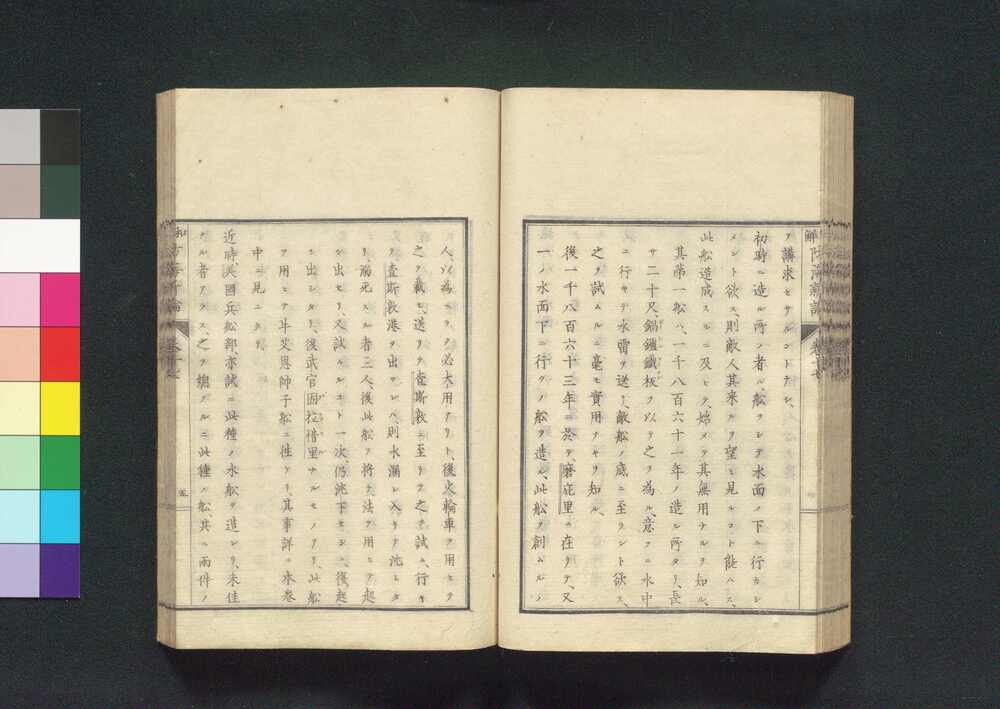 解防海新論 巻十七
ヲ講求セサルコトナシ、
初時ニ造ル所ノ者ハ、船ヲシテ水面ノ下ニ行カシ
メント欲ス、則敵人其来ルヲ望ミ見ルコト能ハス、
此船造成スルニ及ヒテ、始メテ其無用ナルヲ知ル、
其第一船ハ、一千八百六十一年ノ造ル所タリ、長
サ二十尺、鍋鑪鐵板ヲ以テ之ヲ為ル、意フニ水中
ニ行キテ水雷ヲ送リ、敵船ノ底ニ至ラント欲ス、
之ヲ試ムルニ毫モ實用ナキヲ知ル、
後一千八百六十三年ニ於テ、磨庇里ニ在リテ、又
一ノ水面下ニ行クノ船ヲ造ル、此船ヲ創ムルノ
人、以為ラク、必大用アリト、後火輪車ヲ用ヒテ
之ヲ載セ、送リテ査斯敦ニ至リテ之ヲ試ム、行キ
テ査斯敦港ヲ出ツレハ、則水漏レ入リテ沈ミタ
リ、溺死スル者三人、後此船ヲ将テ法ヲ用ヒテ起
シ出セリ、又試ムルコト一次、仍沈下セシニ、復起
シ出シタリ、後武官固拉惜里ナルモノアリ、此船
ヲ用ヒテ斗艾恩師子船ニ往ケリ、其事詳ニ本巻
中ニ見ユタリ
近時、英國兵船部、亦試ニ此種ノ水船ヲ造レリ、未佳
ナル者アラス、之ヲ總フルニ此種ノ船、其ノ兩件ノ
五